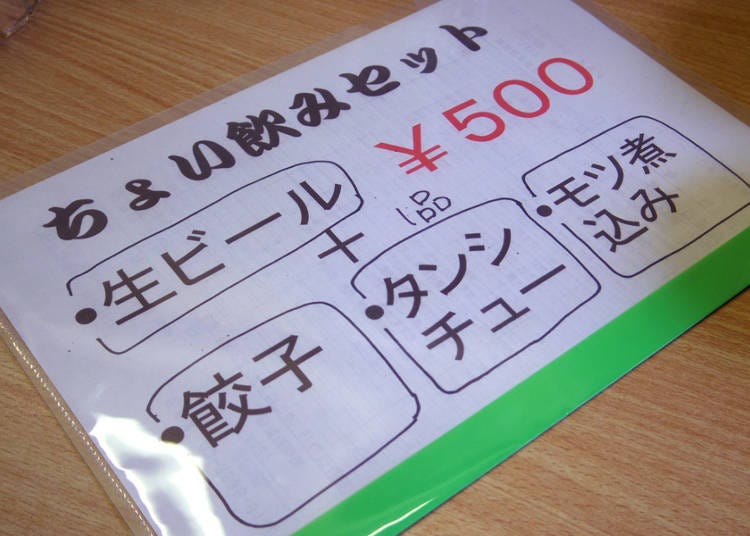 ちょい飲みセット
¥500
・生ビール
+
1品
・餃子
・タンシ
チュー
・モツ煮
込み